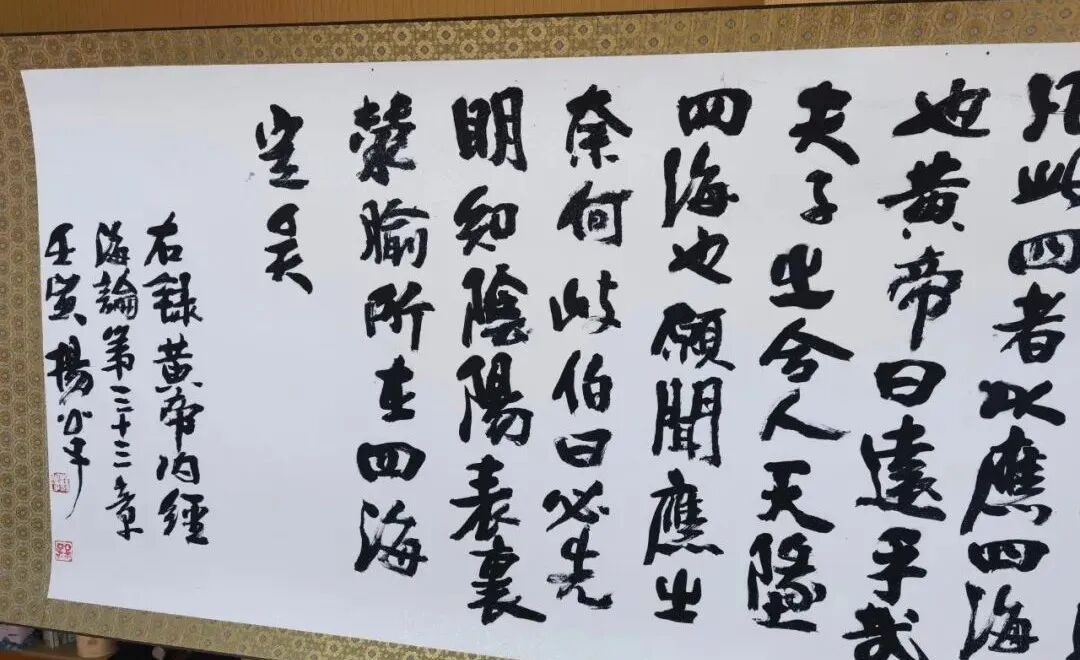 凡此四者以應四海
也黃帝曰遠乎哉
夫子之合人天墬
四海也願聞應之
奈何歧伯曰必先
明知陰陽表裏
滎腧所在四海
定矣
右録黃帝内經
海論第三十三章
壬寅楊